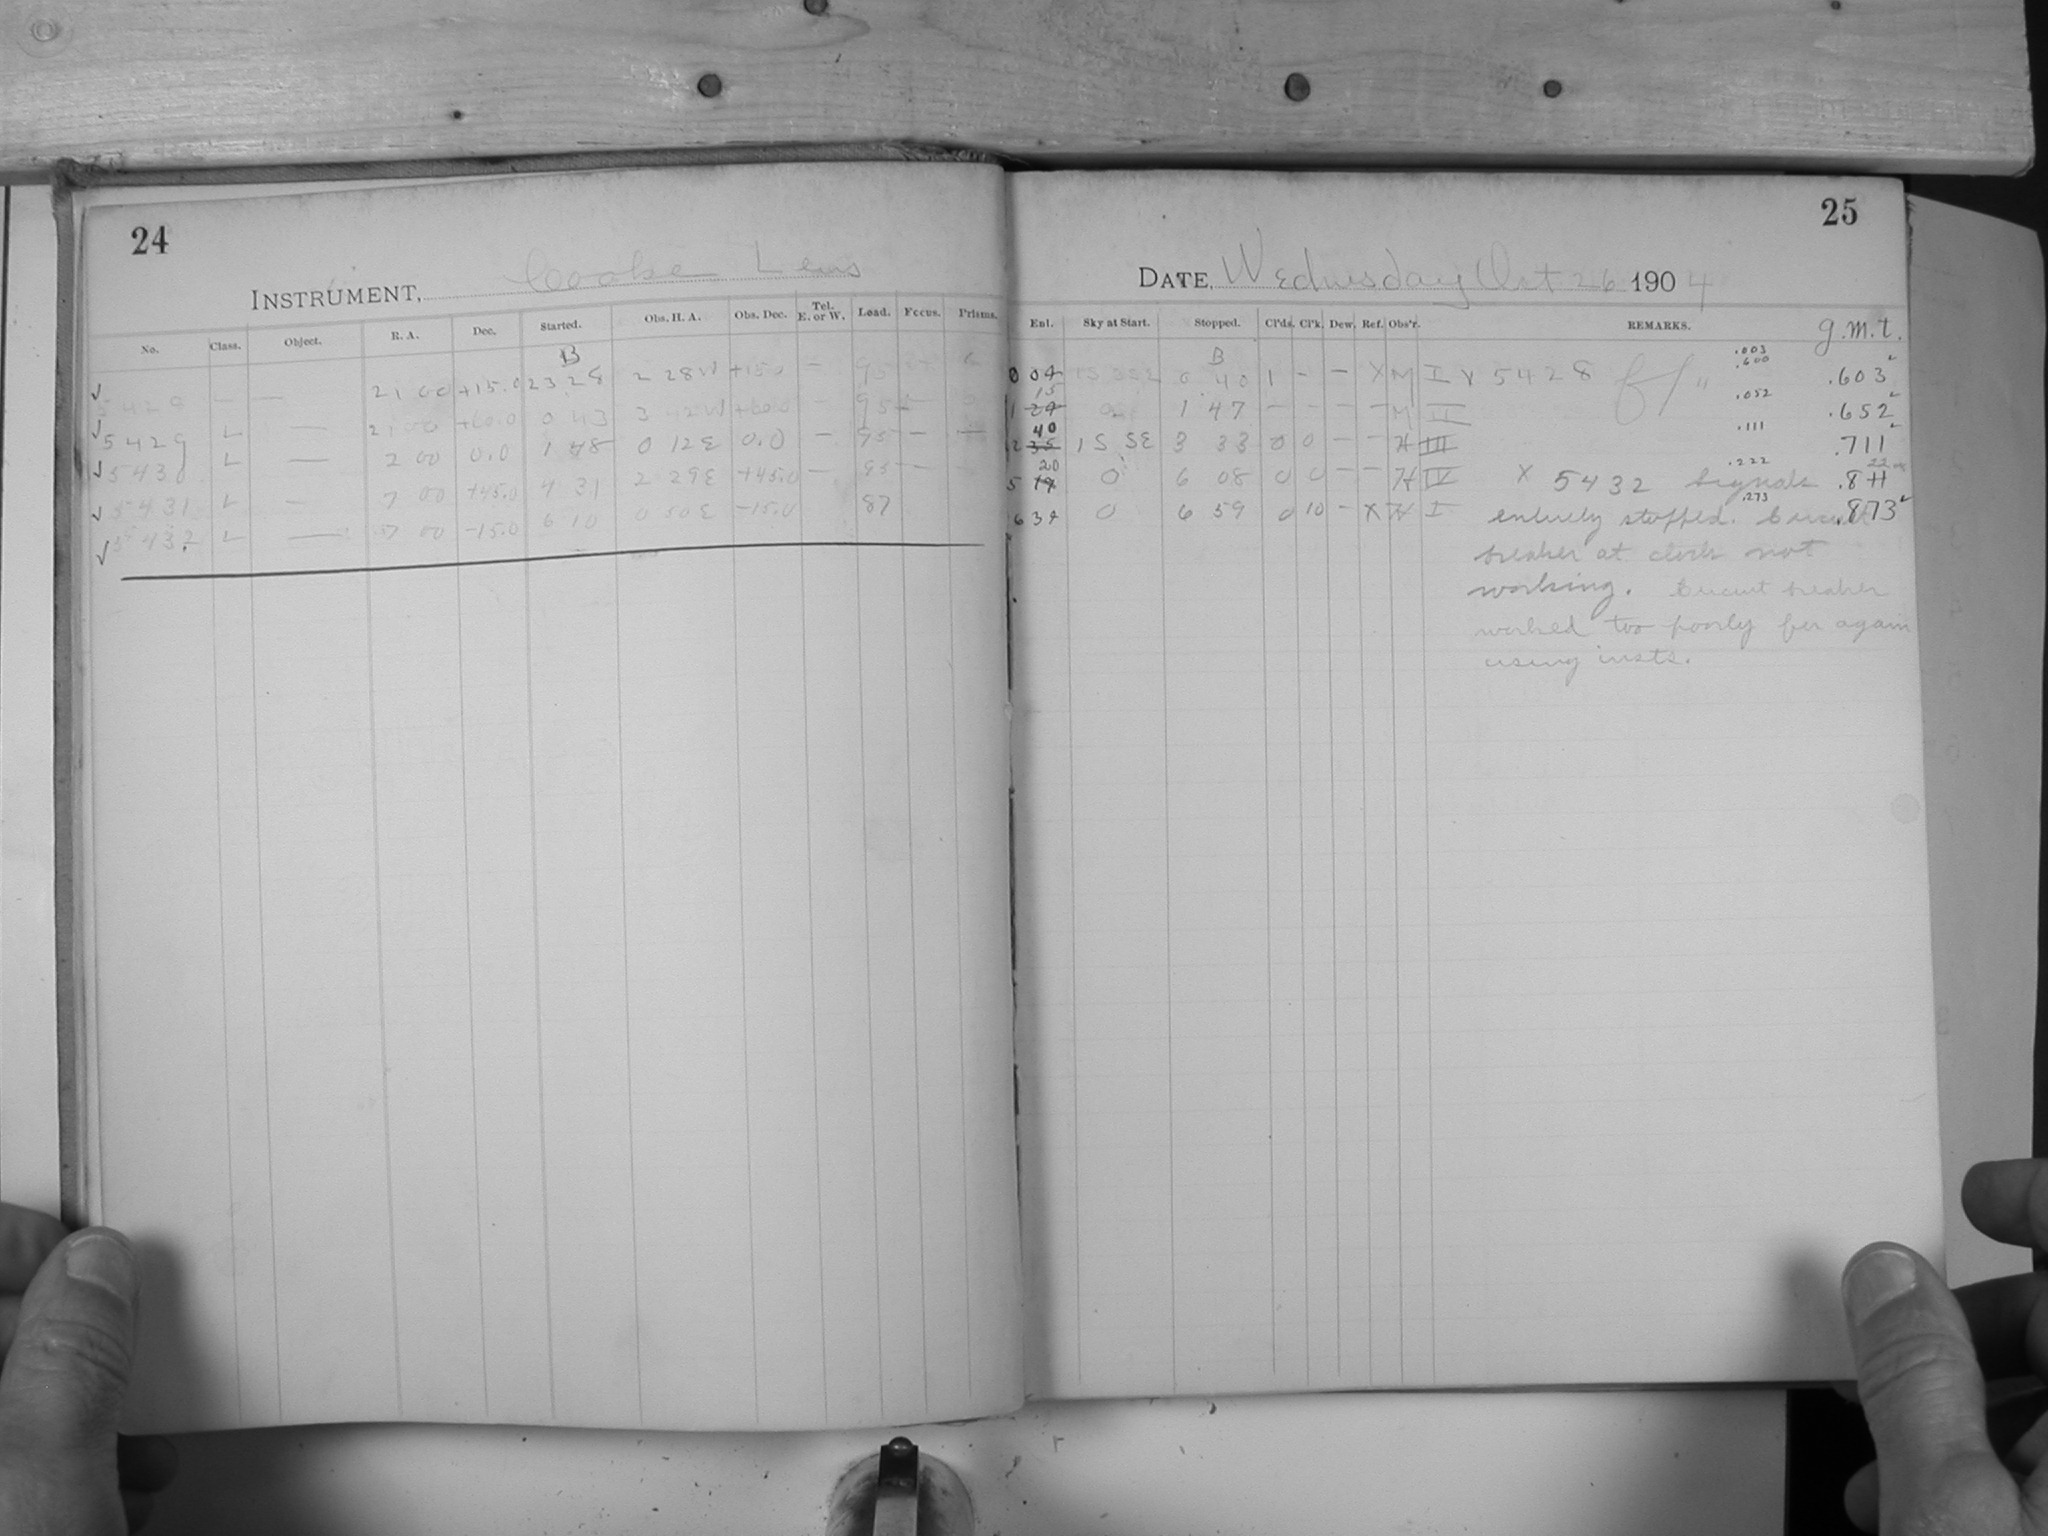 24
INSTRUMENT, Cooke Lens
No. Class. Object. R. A. Dec. Started. Obs. H. A. Obs. Dec. Tel. E. or W. Lead. Focus. Prisms.
B
✓ 5428 — — 21 00 +15.0 23 28 2 28W +15.0 — 95
✓ 5429 L — 21 00 +60.0 0 43 3 42W +60.0 — 95 —
✓ 5430 L — 2 00 0.0 1 48 0 12E 0.0 — 95 — —
✓ 5431 L — 7 00 +45.0 4 31 2 29E +45.0 — 95 —
✓ 5432 L — 7 00 -15.0 6 10 0 50E -15.0 87
25
DATE, Wednesday Oct 26 1904
Enl. Sky at Start. Stopped. Cl'ds. Cl'k. Dew. Ref. Obs'r. REMARKS. g.m.t.
B .003
.600
0 04 0 40 1 — — X M I X 5428 .603
15 .052
1 1 47 — — — — M II .652
40 .111
2 35 1S SE 3 33 0 0 — — H III .711
20 .222 22
5 19 0 6 08 0 0 — — H IV X 5432 Signals .811
.273
6 34 0 6 59 0 10 — X H I entirely stopped. Circuit .873
breaker at clock not
working. Circuit breaker
worked too poorly for again
using insts.